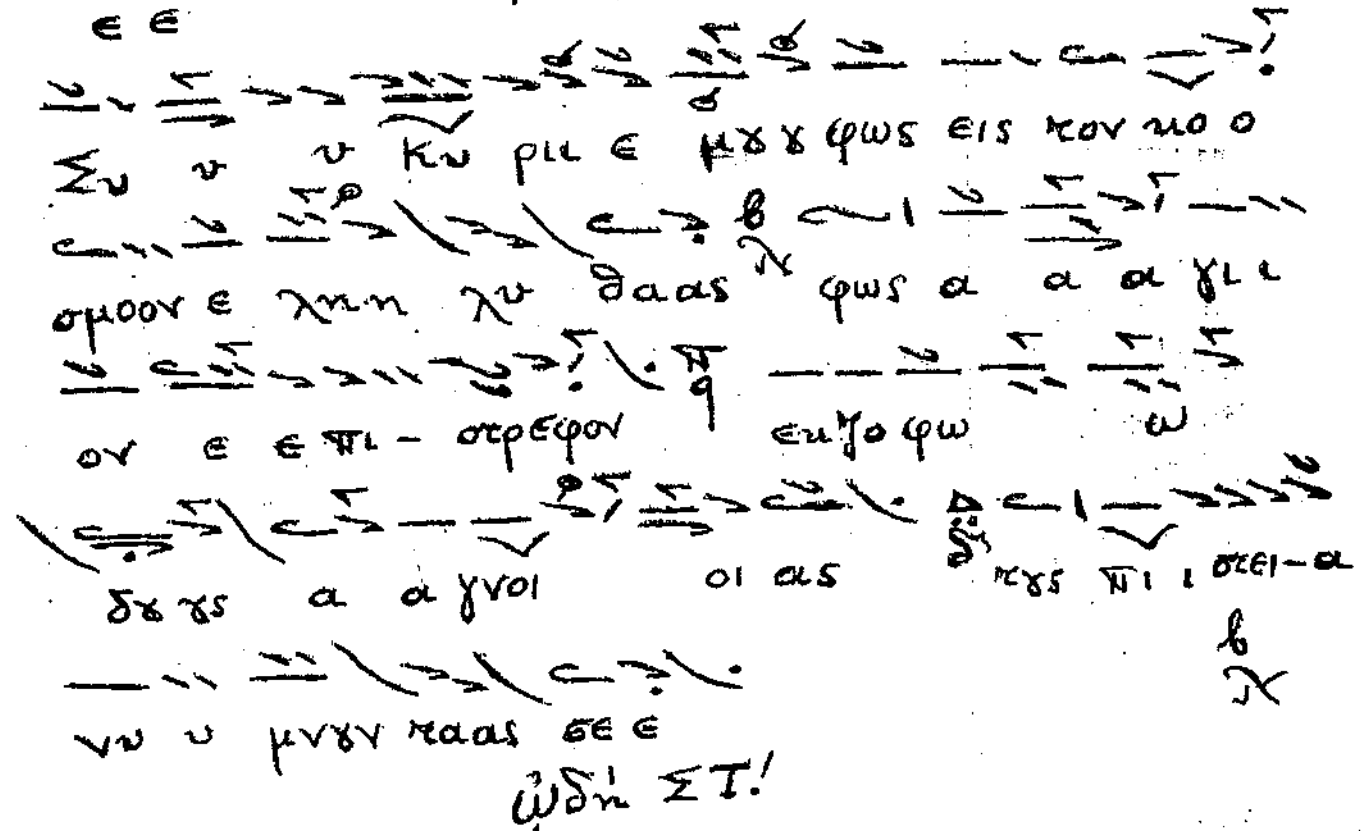 ε ε
Συ υ υ Κυ ρι ι ε μȣ ȣ φως εις τον κο ο
σμοον ε λη η λυ θαας φως α α α γι ι
ον ε ε πι - στρεφον εκ ζο φω ω
δȣ ȣς α α γνοι οι ας τȣς πι ι στει - α
νυ υ μνȣν τaας σε ε
ὠδή ΣΤ!